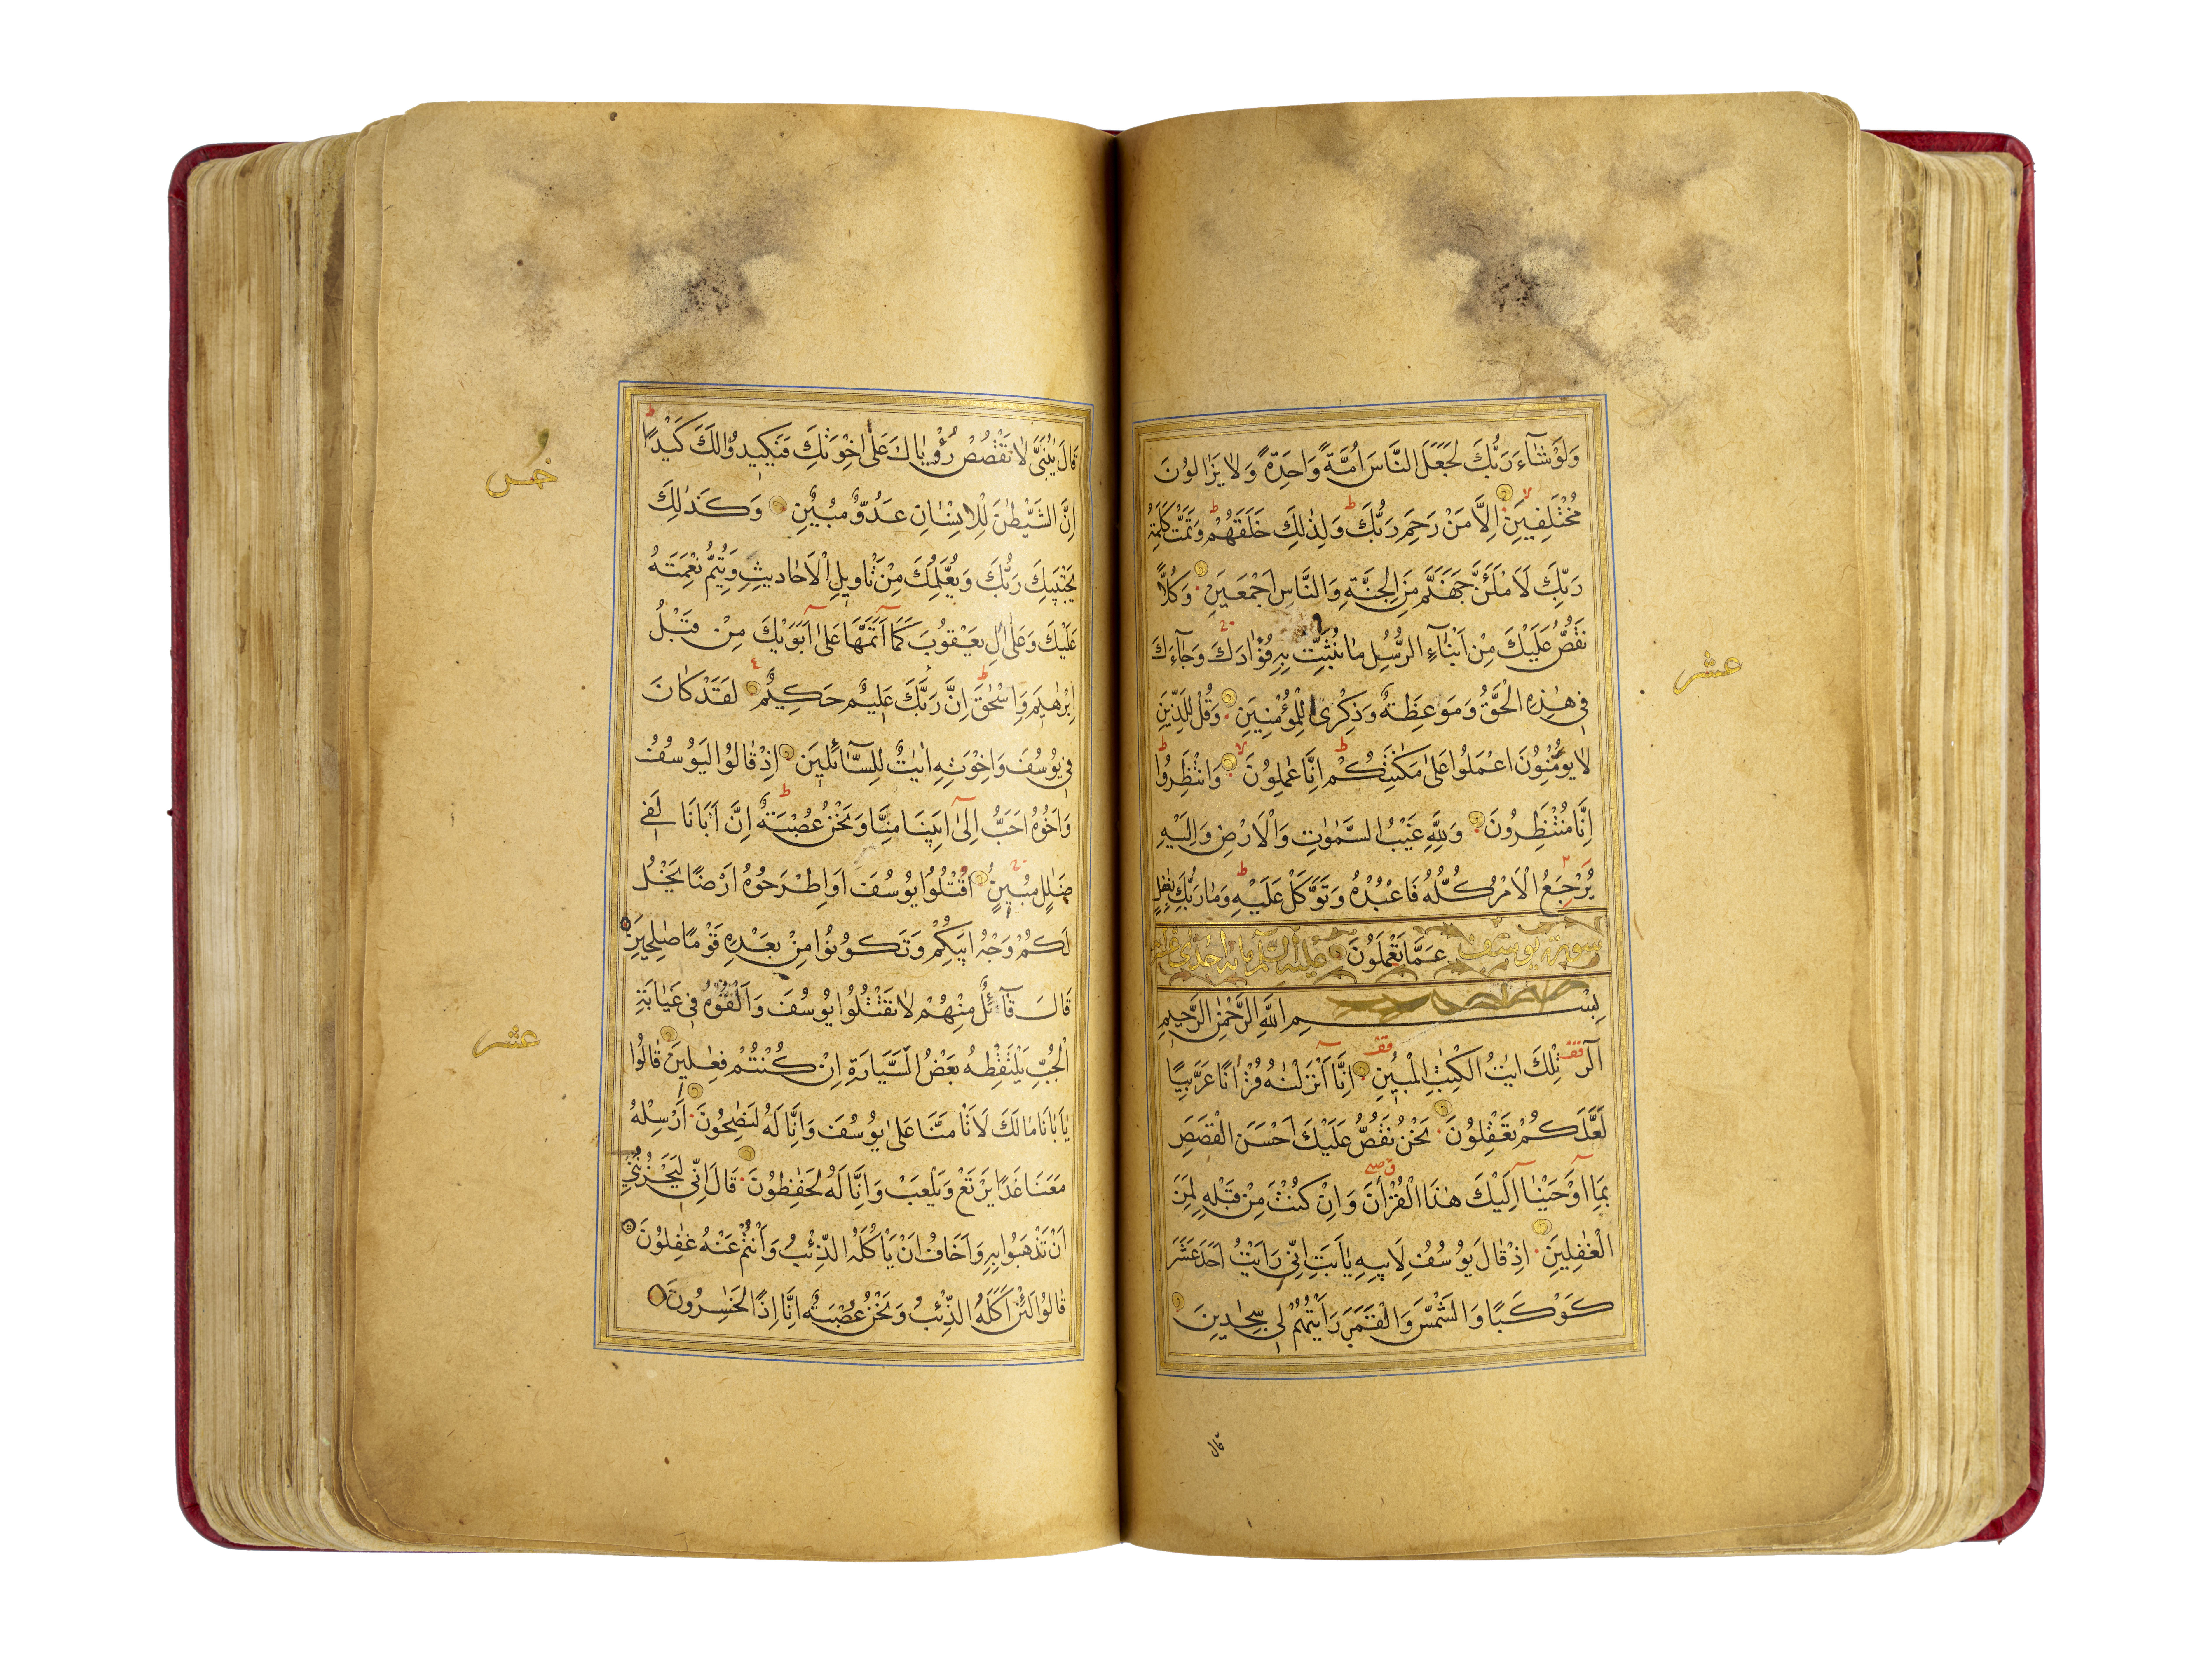 وَلَوْ شَآءَ رَبُّكَ لَجَعَلَ النَّاسَ اُمَّةً وَاحِدَةً وَلَا يَزَالُونَ
مُخْتَلِفِينَ اِلَّا مَنْ رَحِمَ رَبُّكَ ط وَلِذٰلِكَ خَلَقَهُمْ ط وَتَمَّتْ كَلِمَةُ
رَبِّكَ لَاَمْلَـَٔنَّ جَهَنَّمَ مِنَ الْجِنَّةِ وَالنَّاسِ اَجْمَعِينَ وَكُلًّا
نَقُصُّ عَلَيْكَ مِنْ اَنْبَآءِ الرُّسُلِ مَا نُثَبِّتُ بِهِ فُؤَادَكَ وَجَآءَكَ
فِى هٰذِهِ الْحَقُّ وَمَوْعِظَةٌ وَذِكْرٰى لِلْمُؤْمِنِينَ وَقُلْ لِلَّذِينَ
لَا يُؤْمِنُونَ اعْمَلُوا عَلٰى مَكَانَتِكُمْ ط اِنَّا عٰمِلُونَ لا وَانْتَظِرُوا ط
اِنَّا مُنْتَظِرُونَ وَلِلّٰهِ غَيْبُ السَّمٰوٰتِ وَالْاَرْضِ وَاِلَيْهِ
يُرْجَعُ الْاَمْرُ كُلُّهُ فَاعْبُدْهُ وَتَوَكَّلْ عَلَيْهِ ط وَمَا رَبُّكَ بِغٰفِلٍ
سورة يوسف عَمَّا تَعْمَلُونَ عليه السلام مائة احدى عشر
بِسْمِ اللّٰهِ الرَّحْمٰنِ الرَّحِيمِ
الٓرٰ تِلْكَ اٰيٰتُ الْكِتٰبِ الْمُبِينِ اِنَّا اَنْزَلْنٰهُ قُرْاٰنًا عَرَبِيًّا
لَعَلَّكُمْ تَعْقِلُونَ نَحْنُ نَقُصُّ عَلَيْكَ اَحْسَنَ الْقَصَصِ
بِمَا اَوْحَيْنَا اِلَيْكَ هٰذَا الْقُرْاٰنَ وَاِنْ كُنْتَ مِنْ قَبْلِهِ لَمِنَ
الْغٰفِلِينَ اِذْ قَالَ يُوسُفُ لِاَبِيهِ يٰاَبَتِ اِنِّى رَاَيْتُ اَحَدَ عَشَرَ
كَوْكَبًا وَالشَّمْسَ وَالْقَمَرَ رَاَيْتُهُمْ لِى سٰجِدِينَ
قال
عشر
قَالَ يٰبُنَىَّ لَا تَقْصُصْ رُؤْيَاكَ عَلٰى اِخْوَتِكَ فَيَكِيدُوا لَكَ كَيْدًا ط
اِنَّ الشَّيْطٰنَ لِلْاِنْسَانِ عَدُوٌّ مُبِينٌ وَكَذٰلِكَ
يَجْتَبِيكَ رَبُّكَ وَيُعَلِّمُكَ مِنْ تَأْوِيلِ الْاَحَادِيثِ وَيُتِمُّ نِعْمَتَهُ
عَلَيْكَ وَعَلٰى اٰلِ يَعْقُوبَ كَمَا اَتَمَّهَا عَلٰى اَبَوَيْكَ مِنْ قَبْلُ
اِبْرٰهِيمَ وَاِسْحٰقَ ط اِنَّ رَبَّكَ عَلِيمٌ حَكِيمٌ لَقَدْ كَانَ
فِى يُوسُفَ وَاِخْوَتِهِ اٰيَاتٌ لِلسَّآئِلِينَ اِذْ قَالُوا لَيُوسُفُ
وَاَخُوهُ اَحَبُّ اِلٰى اَبِينَا مِنَّا وَنَحْنُ عُصْبَةٌ ط اِنَّ اَبَانَا لَفِى
ضَلٰلٍ مُبِينٍ اقْتُلُوا يُوسُفَ اَوِ اطْرَحُوهُ اَرْضًا يَخْلُ
لَكُمْ وَجْهُ اَبِيكُمْ وَتَكُونُوا مِنْ بَعْدِهِ قَوْمًا صٰلِحِينَ
قَالَ قَآئِلٌ مِنْهُمْ لَا تَقْتُلُوا يُوسُفَ وَاَلْقُوهُ فِى غَيَابَةِ
الْجُبِّ يَلْتَقِطْهُ بَعْضُ السَّيَّارَةِ اِنْ كُنْتُمْ فٰعِلِينَ قَالُوا
يٰاَبَانَا مَا لَكَ لَا تَأْمَنَّا عَلٰى يُوسُفَ وَاِنَّا لَهُ لَنٰصِحُونَ اَرْسِلْهُ
مَعَنَا غَدًا يَرْتَعْ وَيَلْعَبْ وَاِنَّا لَهُ لَحٰفِظُونَ قَالَ اِنِّى لَيَحْزُنُنِى
اَنْ تَذْهَبُوا بِهِ وَاَخَافُ اَنْ يَأْكُلَهُ الذِّئْبُ وَاَنْتُمْ عَنْهُ غٰفِلُونَ
قَالُوا لَئِنْ اَكَلَهُ الذِّئْبُ وَنَحْنُ عُصْبَةٌ اِنَّا اِذًا لَخٰسِرُونَ
خمس
عشر